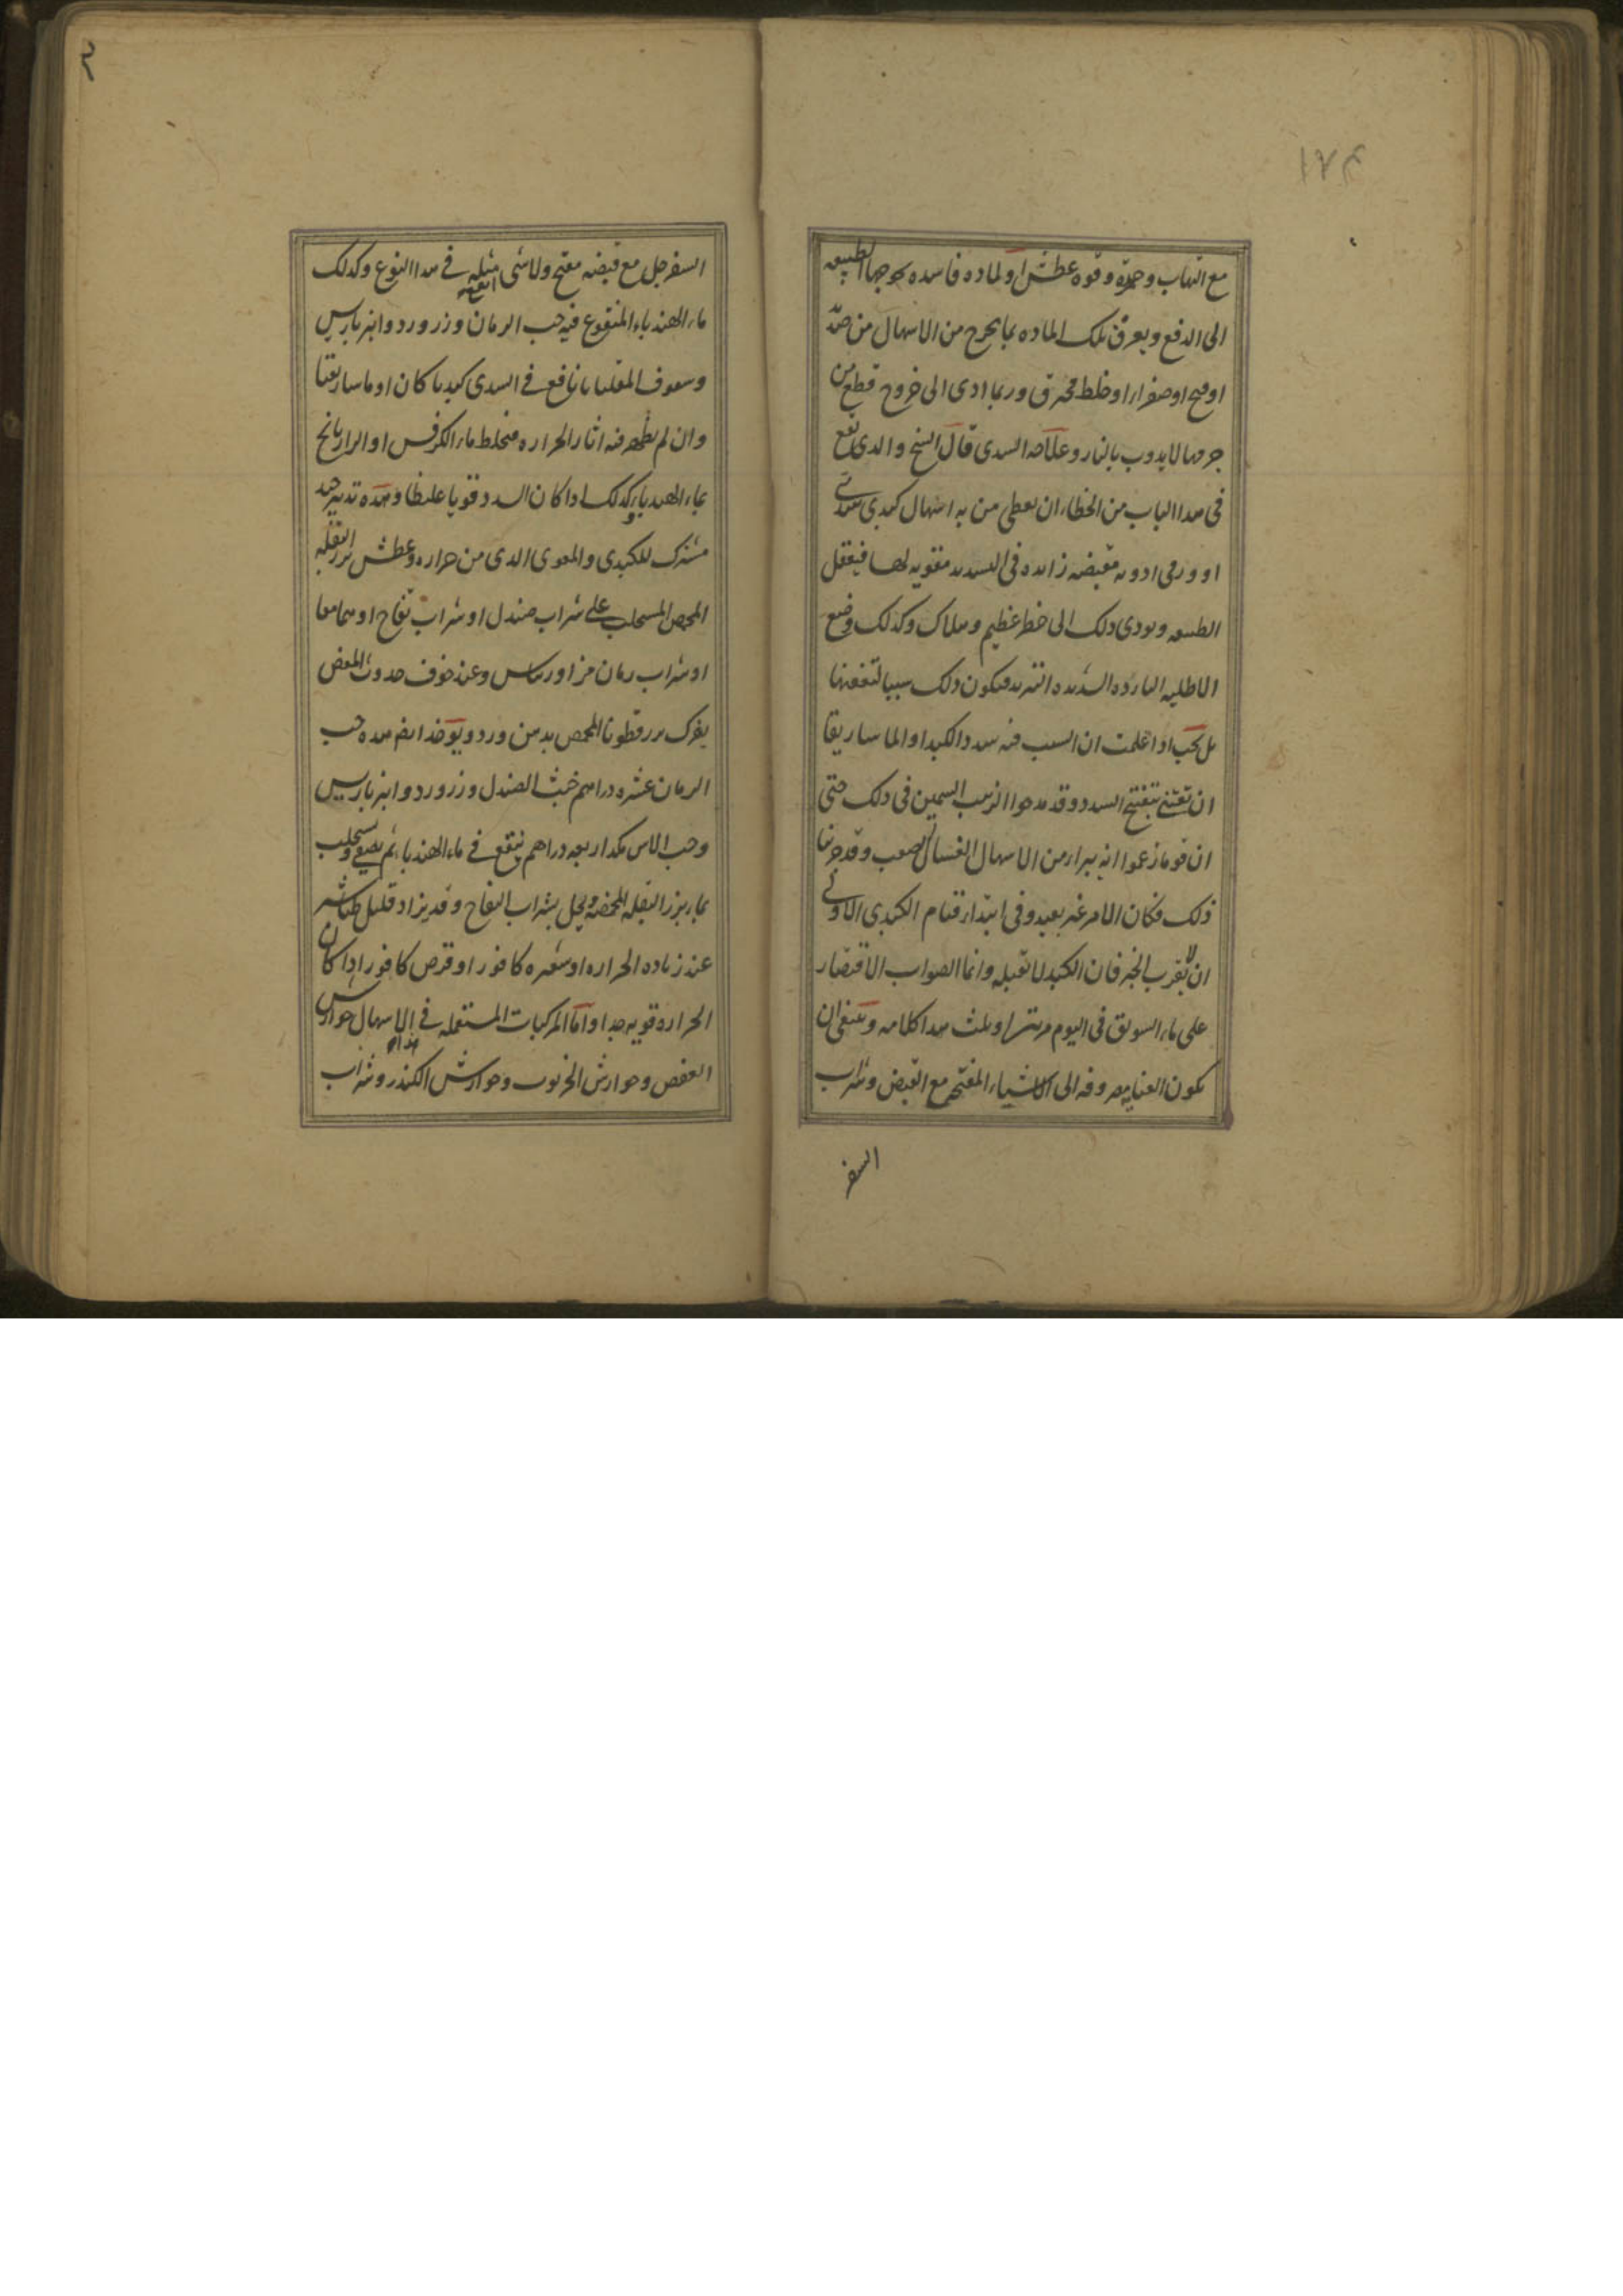 مع التهاب وحمرة وقوه عطش او لماده فاسده الطبيعه
الى الدفع ويعرف تلك الماده بما يخرج من الاسهال من صديد
او قيح او صفرا او خلط محترق وربما ادى الى خروج قطع من
جرمها لا يذوب بالنار وعلامه السددى قال الشيخ والذى يقع
فى هذا الباب من الخطاء ان يعطى من به اسهال كبدى سددى
او ورمى ادويه مقبضه زايده فى التسديد مقويه لها فيعتقل
الطبيعه ويودى ذلك الى خطر عظيم وهلاك وكذلك وضع
الاطليه البارده الشديده التبريد فيكون ذلك سببا لتعفنها
بل يجب اذا علمت ان السبب فيه سدد الكبد او الماساريقا
ان تعتنى بتفتيح السدد وقد مدحوا الزبيب السمين فى ذلك حتى
ان قوما زعموا انه يبرا من الاسهال الغسالى الصعب وقد جربنا
ذلك فكان الامر غير بعيد وفى ابتدا قيام الكبدى الاولى
ان لا يقرب الخبز فان الكبد لا تقبله وانما الصواب الاقتصار
على ماء السويق فى اليوم مرتين او ثلث هذا كلامه وينبغى ان
يكون العنايه مصروفه الى الاشياء المفتحه مع القبض وشراب
السفر
السفرجل مع قبضه مفتح ولا شى مثله فى هذا النوع وكذلك
ماء الهندباء المنقوع فيه حب الرمان وزر ورد وانبرباريس
وسفوف المقلياثا نافع فى السددى كبديا كان او ماساريقيا
وان لم يظهر فيه اثار الحراره فيخلط ماء الكرفس او الرازيانج
بماء الهندباء وكذلك اذا كان السدد قويا غليظا وهذه تدبير جيد
مشترك للكبدى والمعوى الذى من حراره وعطش بزر البقله
المحمص المستحلب على شراب صندل او شراب تفاح او هما معا
او شراب رمان مز او ريباس وعند خوف حدوث المغص
يفرك بزر قطونا المحمص بدهن ورد ويوخذ ايضا هذه حب
الرمان عشره دراهم خشب الصندل وزر ورد وانبرباريس
وحب الاس مكد اربعه دراهم ينقع فى ماء الهندباء ثم يصفى ويستحلب
بماء بزر البقله المحمصه ويحلى بشراب التفاح وقد يزاد قليل طباشير
عند زياده الحراره او شعيره كافور او قرص كافور اذا كان
الحراره قويه جدا واما المركبات المستعمله فى هذا الاسهال جوارش
العفص وجوارش الخرنوب وجوارش الكندر وشراب